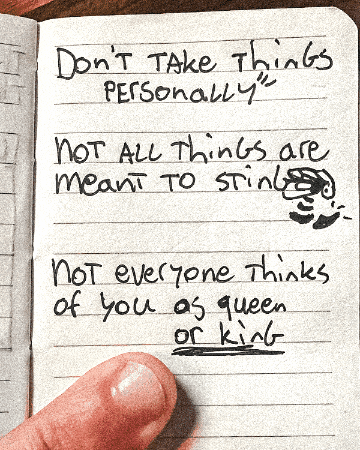 Don't Take Things
Personally"
Not all things are
meant to sting
Not everyone thinks
of you as queen
or king